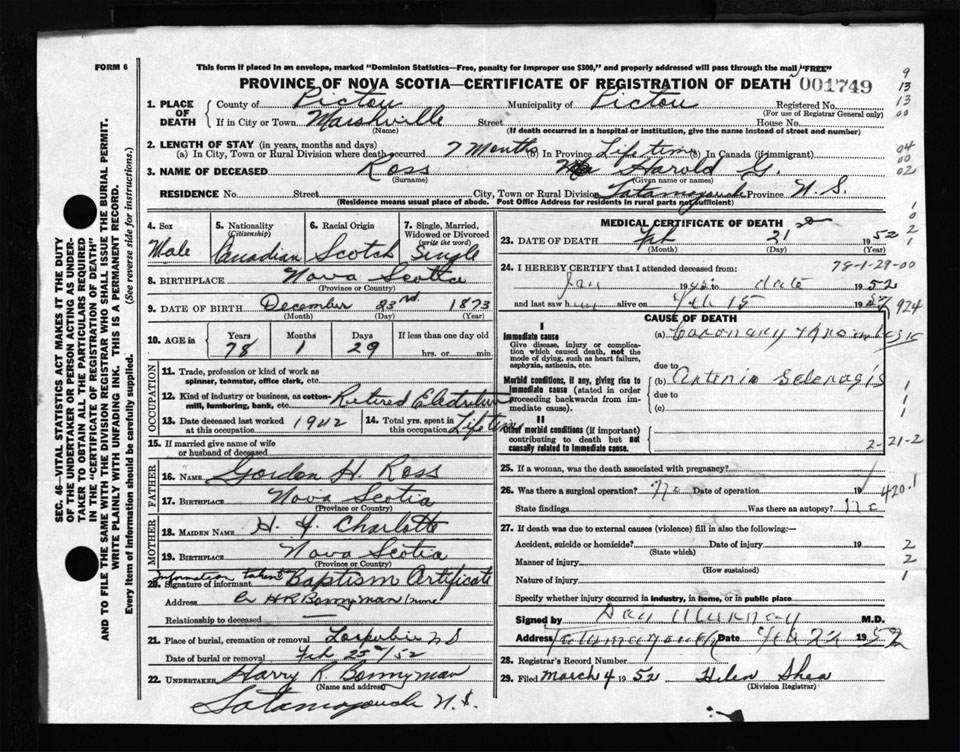 FORM 6
This form if placed in an envelope, marked "Dominion Statistics—Free, penalty for improper use $300," and properly addressed will pass through the mail "FREE"
PROVINCE OF NOVA SCOTIA—CERTIFICATE OF REGISTRATION OF DEATH 001749
1. PLACE OF DEATH
County of Pictou Municipality of Pictou Registered No.
(For use of Registrar General only)
If in City or Town Marshville Street House No.
(Name) (If death occurred in a hospital or institution, give the name instead of street and number)
2. LENGTH OF STAY (in years, months and days)
(a) In City, Town or Rural Division where death occurred 7 Months (b) In Province Lifetime (c) In Canada (if immigrant)
3. NAME OF DECEASED Ross Harold G.
(Surname) (Given name or names)
RESIDENCE No. Street City, Town or Rural Division Tatamagouche Province N.S.
(Residence means usual place of abode. Post Office Address for residents in rural parts not sufficient)
4. Sex
Male
5. Nationality
(Citizenship)
Canadian
6. Racial Origin
Scotch
7. Single, Married, Widowed or Divorced
(write the word)
Single
8. BIRTHPLACE Nova Scotia
(Province or Country)
9. DATE OF BIRTH December 23rd. 1873
(Month) (Day) (Year)
10. AGE in
Years Months Days If less than one day old
78 1 29 hrs. or min.
OCCUPATION
11. Trade, profession or kind of work as
spinner, teamster, office clerk, etc.
12. Kind of industry or business, as cotton-
mill, lumbering, bank, etc. Retired
13. Date deceased last worked at this occupation 1942
14. Total yrs. spent in this occupation Lifetime
15. If married give name of wife
or husband of deceased
FATHER
16. NAME Gordon H. Ross
17. BIRTHPLACE Nova Scotia
(Province or Country)
MOTHER
18. MAIDEN NAME H. Y. Charlotte
19. BIRTHPLACE Nova Scotia
(Province or Country)
Information taken
20. Signature of informant Baptism
Address H R Bonnyman
Relationship to deceased
21. Place of burial, cremation or removal N S
Date of burial or removal Feb 25 /52
22. UNDERTAKER Harry R. Bonnyman
(Name and address)
Tatamagouche N.S.
MEDICAL CERTIFICATE OF DEATH
23. DATE OF DEATH Feb 21 1952
(Month) (Day) (Year)
24. I HEREBY CERTIFY that I attended deceased from:
78-1-29-00
Jan to date 1952
and last saw h alive on Feb 15 19
CAUSE OF DEATH
I
Immediate cause
Give disease, injury or complication which caused death, not the mode of dying, such as heart failure, asphyxia, asthenia, etc.
(a) Coronary
due to
Morbid conditions, if any, giving rise to immediate cause (stated in order proceeding backwards from immediate cause).
(b)
due to
(c)
II
Other morbid conditions (if important) contributing to death but not causally related to immediate cause.
2-21-2
25. If a woman, was the death associated with pregnancy?
26. Was there a surgical operation? No Date of operation 19
420.1
State findings Was there an autopsy? No
27. If death was due to external causes (violence) fill in also the following:—
Accident, suicide or homicide? Date of injury 19
(State which)
Manner of injury
(How sustained)
Nature of injury
Specify whether injury occurred in industry, in home, or in public place
Signed by Murray M.D.
Address Tatamagouche Date Feb 1952
28. Registrar's Record Number
29. Filed March 4 1952 Helen Shea
(Division Registrar)
SEC. 46—VITAL STATISTICS ACT MAKES IT THE DUTY
OF THE UNDERTAKER OR PERSON ACTING AS UNDER-
TAKER TO OBTAIN ALL THE PARTICULARS REQUIRED
IN THE "CERTIFICATE OF REGISTRATION OF DEATH"
AND TO FILE THE SAME WITH THE DIVISION REGISTRAR WHO SHALL ISSUE THE BURIAL PERMIT.
WRITE PLAINLY WITH UNFADING INK. THIS IS A PERMANENT RECORD.
Every item of information should be carefully supplied. (See reverse side for instructions.)
9
13
13
00
04
00
02